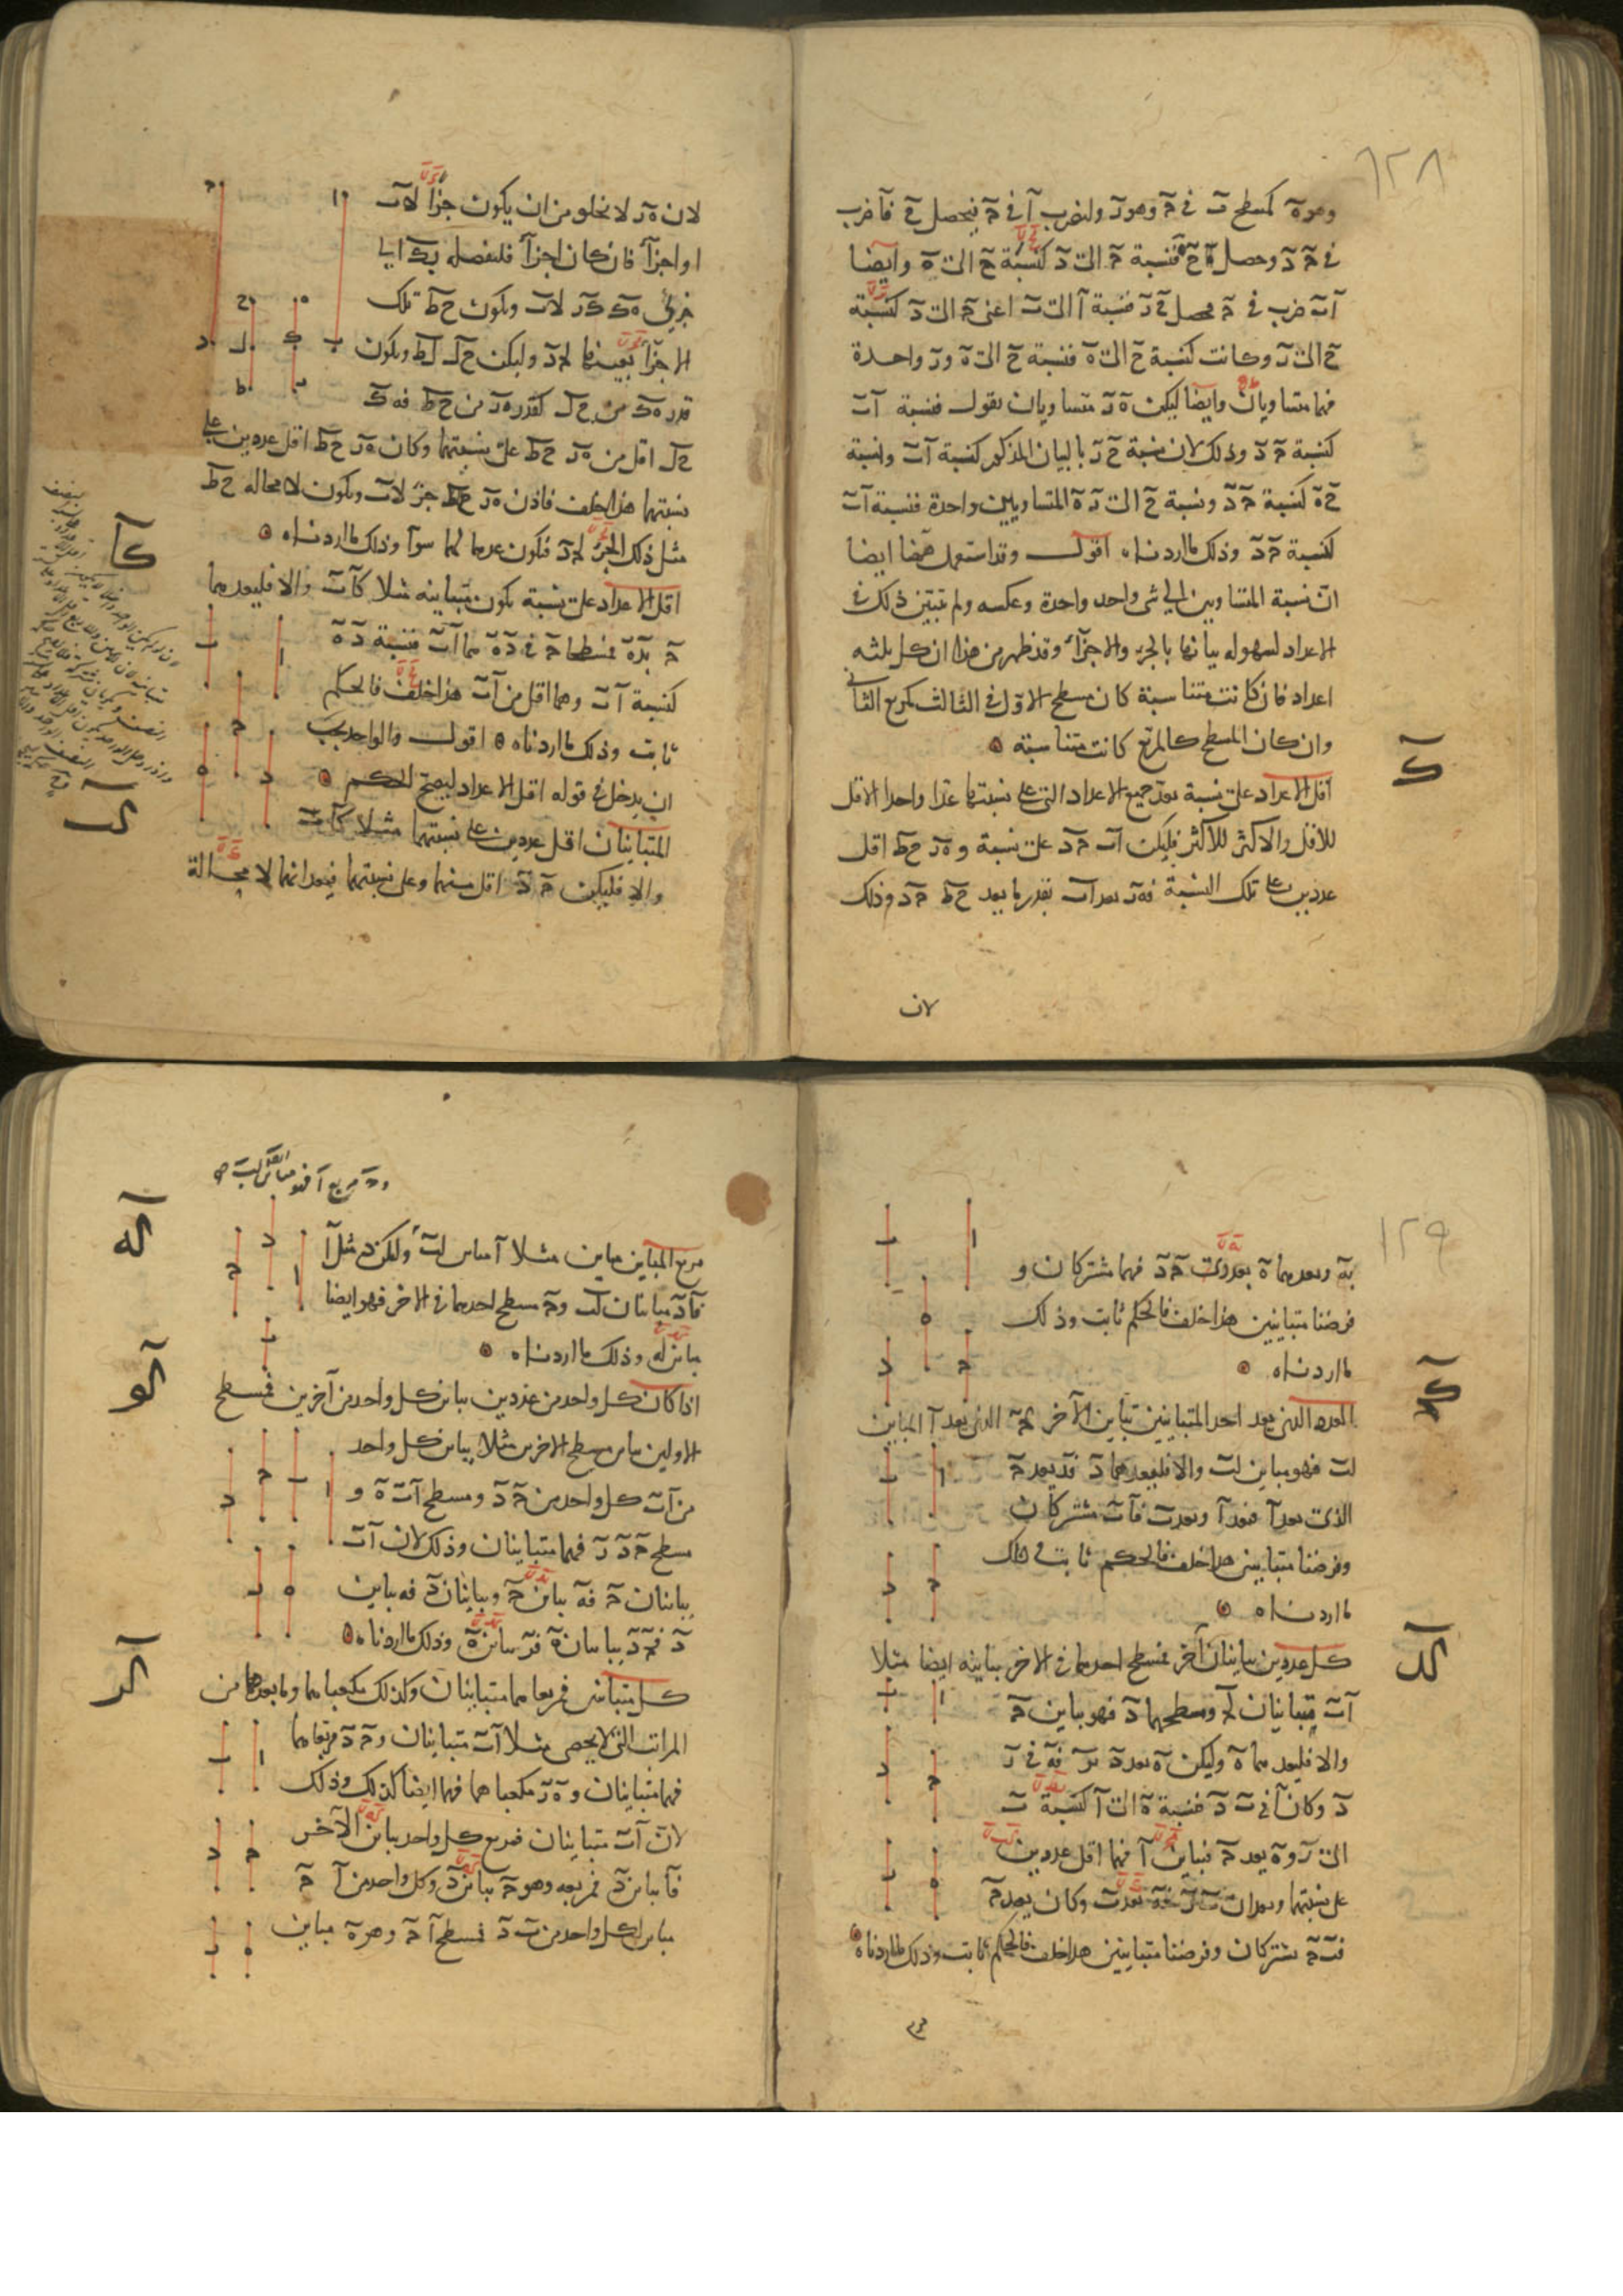 ١٢٨
وهو ه كمسطح ب في ح وهو ر ولنضرب ا في ح فيحصل ح فا ضرب
في ح د وحصل ح ه فنسبة ح الى د كنسبة ح الى ه وايضا
ا ب ضرب في ح فحصل ح ر فنسبة ا الى ب اعنى ح الى د كنسبة
ح الى ر وكانت كنسبة ح الى ه فنسبة ح الى ه و ر واحدة
فهما متساويان وايضا ليكن ه ر متساويان نقول فنسبة ا ب
كنسبة ح د وذلك لان نسبة ح ر بالبيان المذكور كنسبة ا ب ونسبة
ح ه كنسبة ح د ونسبة ح الى ر ه المتساويين واحدة فنسبة ا ب
كنسبة ح د وذلك ما اردناه اقول وقد استعمل ههنا ايضا
ان نسبة المتساويين الى شى واحد واحدة وعكسه ولم تتبين ذلك في
الاعداد لسهوله بيانها بالجزء والاجزآء وقد ظهر من هذا ان كل ثلثه
اعداد فان كانت متناسبة كان مسطح الاول في الثالث كمربع الثانى
وان كان المسطح كالمربع كانت متناسبة
ك
اقل الاعداد على نسبة يعد جميع الاعداد التى على نسبتها عدا واحدا الاقل
للاقل والاكثر للاكثر فليكن ا ب ح د على نسبة و ه ر ح ط اقل
عددين على تلك النسبة فه ر يعد ا ب بقدر ما يعد ح ط ح د وذلك
لان
لان ه ر لا يخلو من ان يكون جزا لا ب
او اجزآ فان كان اجزآ فلنفصله بك الى
جزئى ه ك ك ر لا ب ويكون ح ط تلك
الاجزآ بعينها لح د وليكن ح ل ل ط ويكون
قدر ه ك من ح ل كقدر ه ر من ح ط فه ك
ح ل اقل من ه ر ح ط على نسبتهما وكان ه ر ح ط اقل عددين على
نسبتهما هذا خلف فاذن ه ر جزء لا ب ويكون لا محاله ح ط
مثل ذلك الجزء لح د فيكون عدهما لهما سوآ وذلك ما اردناه
كا
اقل الاعداد على نسبة يكون متباينه مثلا كا ب والا فليعدهما
ح بد ه فمسطحا ح في د ه هما ا ب فنسبة د ه
كنسبة ا ب وهما اقل من ا ب هذا خلف فالحكم
ثابت وذلك ما اردناه اقول والواحد يجب
ان يدخل في قوله اقل الاعداد ليصح الحكم
كب
المتباينان اقل عددين على نسبتهما مثلا كا ب
والا فليكن ح د اقل منهما وعلى نسبتهما فيعدانهما لا محالة
١٢٩
به ويعدهما ه بعدد ب ح د فهما مشتركان و
فرضنا متباينين هذا خلف فالحكم ثابت وذلك
ما اردناه
كج
العدد الذى يعد احد المتباينين تباين الآخر كح الذى يعد ا المباين
لب فهو مباين لب والا فليعدهما د فد يعد ح
الذى يعد ا فيعد ا ويعد ب فا ب مشتركان
وفرضنا متباينين هذا خلف فالحكم ثابت وذلك
ما اردناه
كد
كل عددين يباينان آخر فمسطح احدهما في الاخر يباينه ايضا مثلا
ا ب يباينان لح ومسطحهما د فهو يباين ح
والا فليعدهما ه وليكن ه يعد د بر فه في ر
د وكان ا في ب د فنسبة ه الى ا كنسبة ب
الى ر و ه يعد ح فيباين ا فهما اقل عددين
على نسبتهما ويعدان ب ر فه يعد ب وكان يعد ح
فب ح مشتركان وفرضنا متباينين هذا خلف فالحكم ثابت وذلك ما اردناه
كه
مربع المباين مباين مثلا ا مباين لب وليكن د مثل ا
فا د مباينان لب و ح مسطح احدهما في الاخر فهو ايضا
مباين له وذلك ما اردناه
كو
اذا كان كل واحد من عددين يباين كل واحد من آخرين فمسطح
الاولين يباين مسطح الاخرين مثلا يباين كل واحد
من ا ب كل واحد من ح د ومسطح ا ب ه و
مسطح ح د ر فهما متباينان وذلك لان ا ب
يباينان ح فه يباين ح ويباينان د فه يباين
د فح د يباينان ه فر يباين ه وذلك ما اردناه
كز
كل متباينين فمربعاهما متباينان وكذلك مكعباهما وما بعدهما من
المراتب التى لا يحصى مثلا ا ب متباينان و ح د مربعاهما
فهما متباينان و ه ر مكعباهما فهما ايضا كذلك وذلك
لان ا ب متباينان فمربع كل واحد يباين الآخر
فا يباين د فمربعه وهو ح يباين د وكل واحد من ا ح
يباين كل واحد من ب د فمسطح ا ح وهو ه مباين